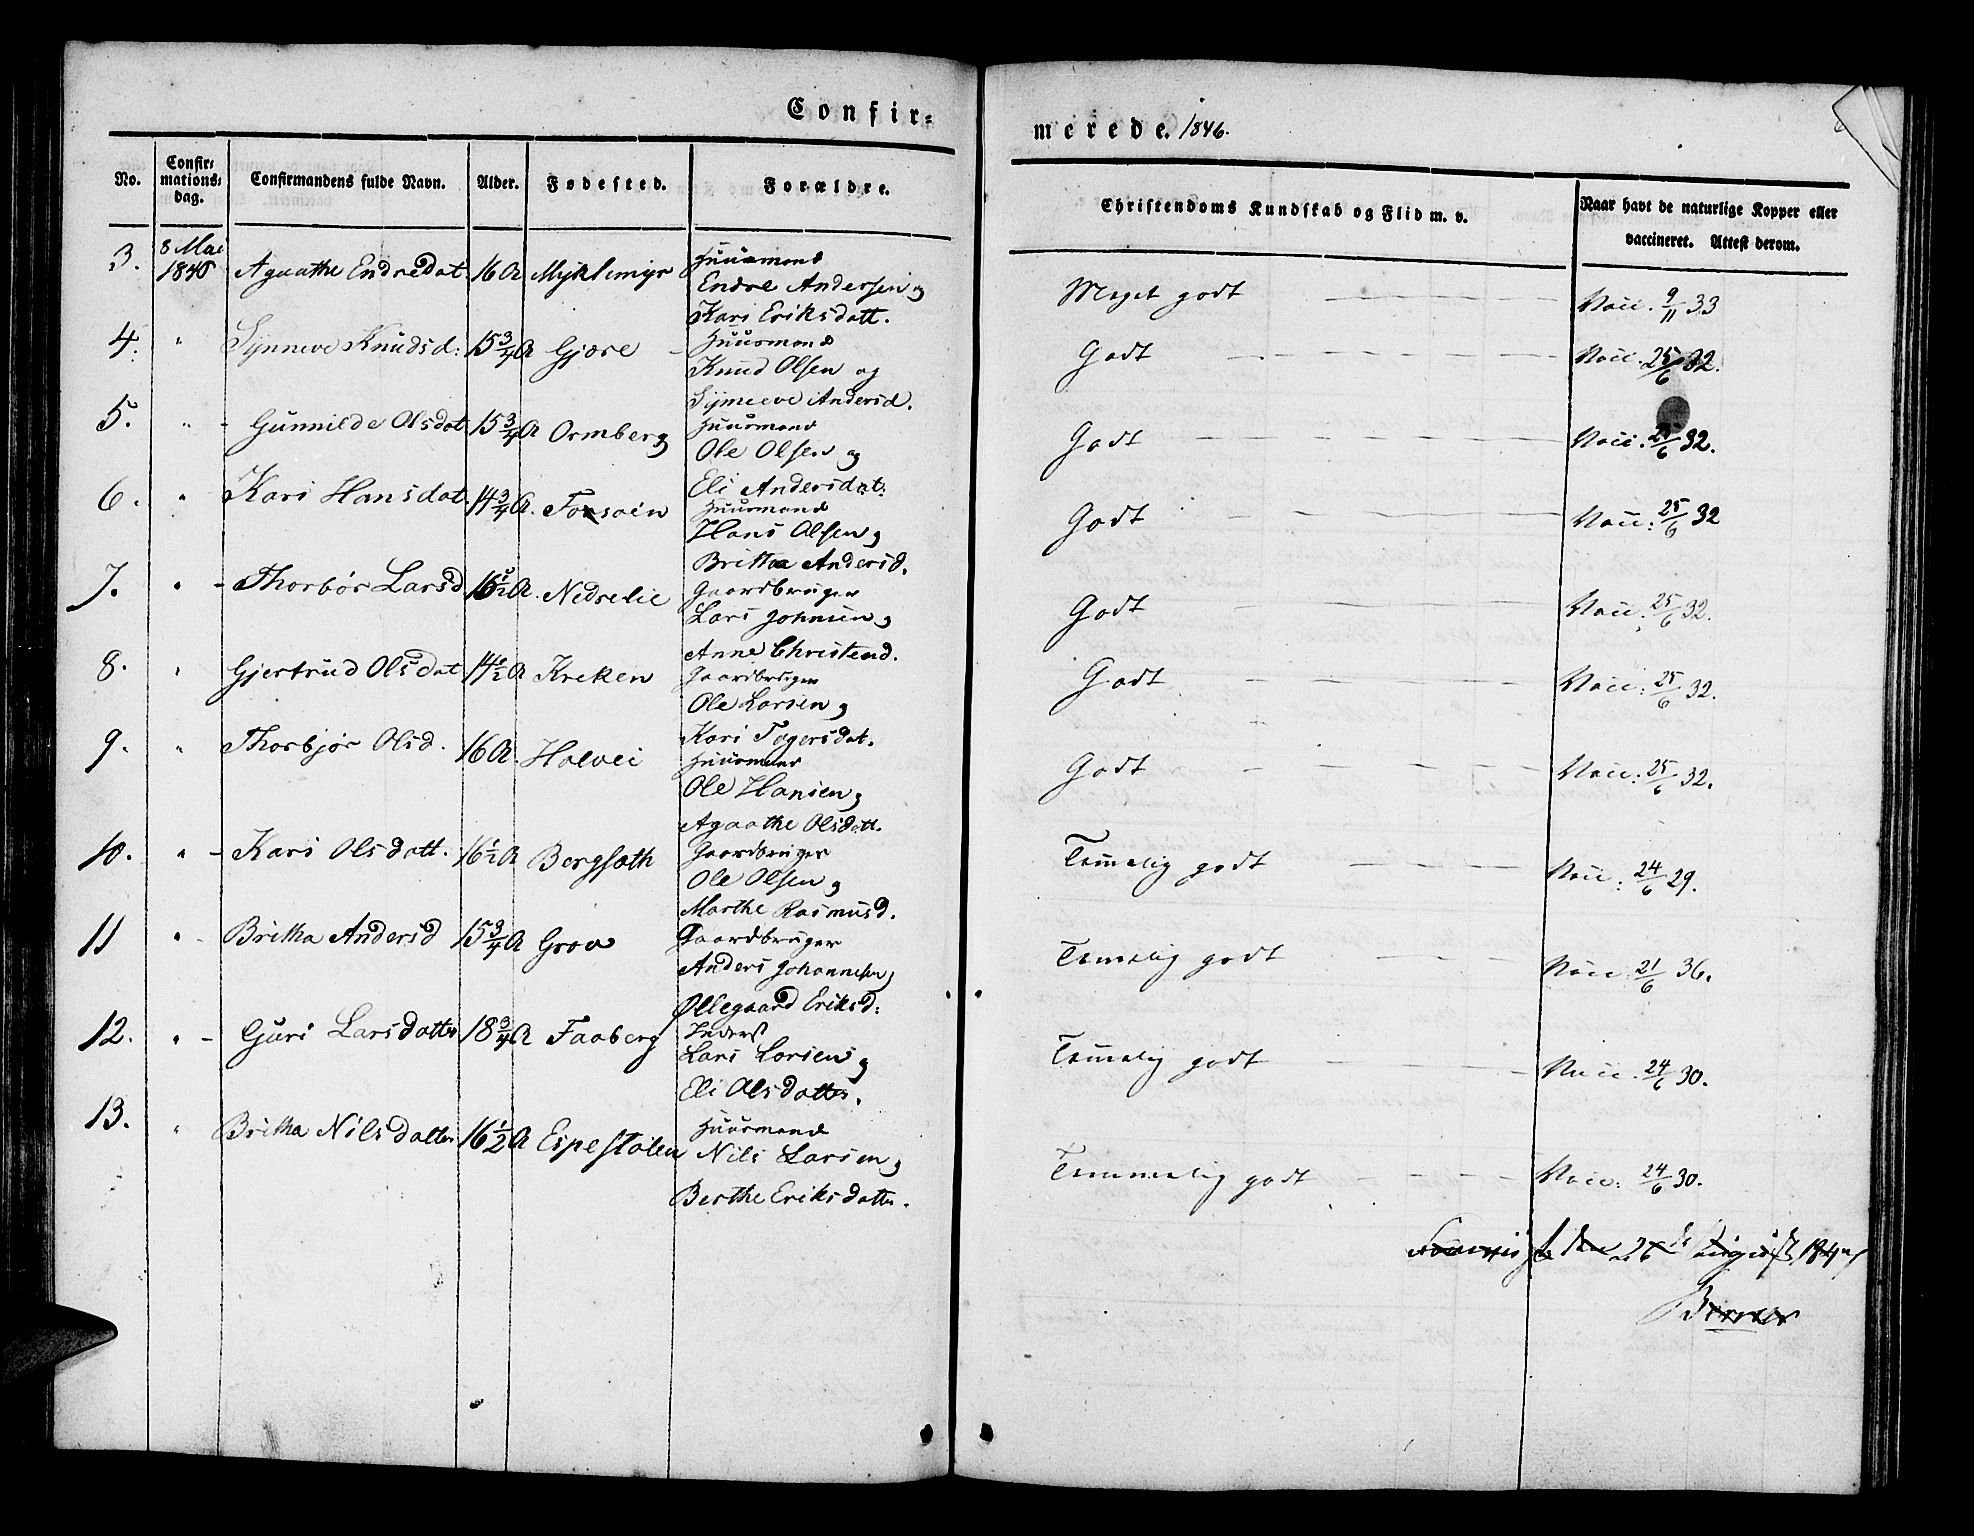 Confir-
merede. 1846.
No.
Confir-
mations-
dag.
Confirmandens fulde Navn.
Alder.
Fødested.
Forældre.
Christendoms Kundskab og Flid m. v.
Naar havt de naturlige Kopper eller
vaccineret. Attest derom.
3. 3 Mai 1846 Agaathe Endredat 16 A Myklemyr
Huusmand
Endre Andersen og
Kari Eriksdatt.
Meget godt Vacc. 9/11 33
4. " Synneve Knudsd: 15 3/4 A Gjøre
Huusmand
Knud Olsen og
Synneve Andersd.
Godt Vacc. 25/6 32.
5. " Gunnilde Olsdat 15 3/4 A Ormberg
Huusmand
Ole Olsen og
Eli Andersdat:
Godt Vacc: 25/6 32.
6. " Kari Hansdat. 14 3/4 A.
Huusmand
Hans Olsen og
Brittaa Andersd.
Godt Vacc: 25/6 32
7. " Thorbør Larsd 16 1/2 A. Nedrelie
Gaardbruger
Lars Johnsen og
Anne Christend.
Godt Vacc: 25/6 32.
8. " Gjertrud Olsdat 14 1/2 A Kreken
Gaardbruger
Ole Larsen og
Kari Togersdat.
Godt Vacc: 25/6 32.
9. " Thorbjør Olsd. 16 A. Halvei
Huusmand
Ole Hansen og
Agaathe Olsdatt.
Godt Vacc: 25/6 32.
10. " Kari Olsdatt. 16 1/2 A Bergsæth
Gaardbruger
Ole Olsen og
Marthe Rasmusd.
Temmelig godt Vacc: 24/6 29.
11 " Britha Andersd 15 3/4 A Grov
Gaardbruger
Anders Johannesen og
Øllegaard Eriksd:
Temmelig godt Vacc 21/6 36.
12. " Guri Larsdatter 18 3/4 A Faaberg
Inderst
Lars Larsen og
Eli Olsdatter.
Temmelig godt Vacc. 24/6 30.
13. " Britha Nilsdatter 16 1/2 A Espestølen
Huusmand
Nils Larsen og
Berthe Eriksdatter.
Temmelig godt Vacc: 24/6 30.
den 26 de August